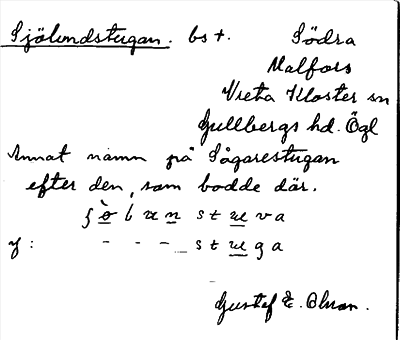 Sjölundstugan. bst. Södra
Malfors
Vreta Kloster sn
Gullbergs hd. Ögl
Annat namn på Sågarestugan
efter den, som bodde där.
st u va
y: - - - _ st u ga
Gustaf E. Olsson.